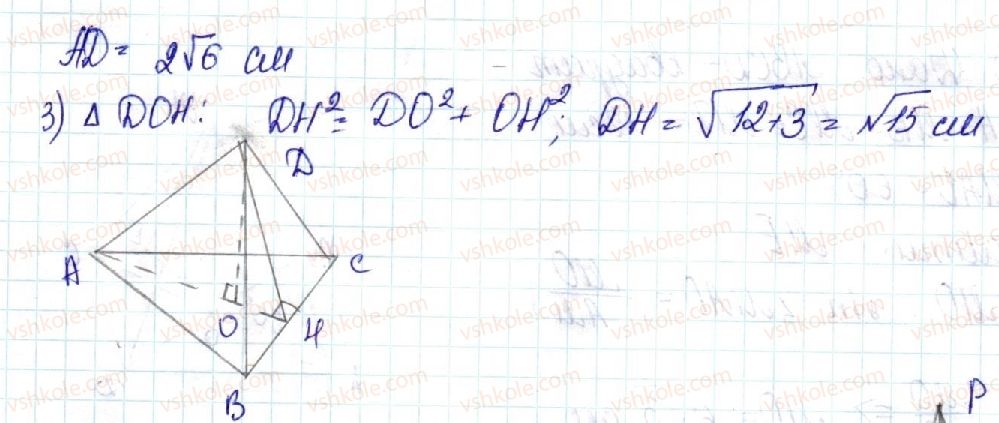 AD = 2√6 см
3) △ DOH: DH² = DO² + OH²; DH = √12+3 = √15 см
D
A
C
O
H
B
P
vshkole.com